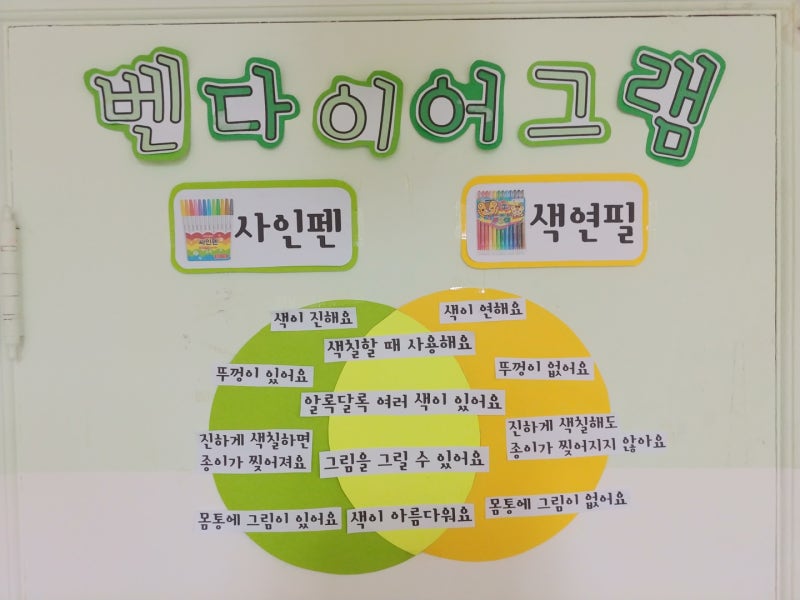 벤다이어그램
사인펜
색연필
색이 진해요
뚜껑이 있어요
진하게 색칠하면
종이가 찢어져요
몸통에 그림이 있어요
색칠할 때 사용해요
알록달록 여러 색이 있어요
그림을 그릴 수 있어요
색이 아름다워요
색이 연해요
뚜껑이 없어요
진하게 색칠해도
종이가 찢어지지 않아요
몸통에 그림이 없어요